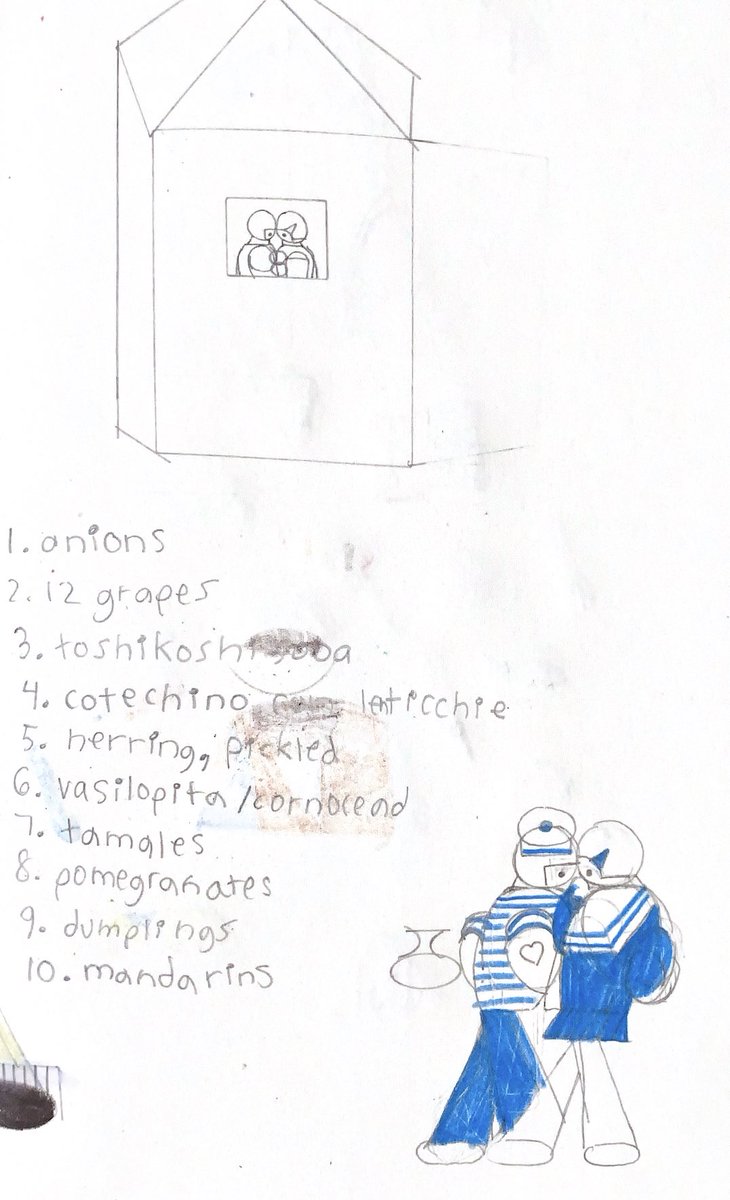 1. anions
2. 12 grapes
3. toshikoshi soba
4. cotechino lenticchie
5. herring, pickled
6. vasilopita/cornbread
7. tamales
8. pomegranates
9. dumplings
10. mandarins